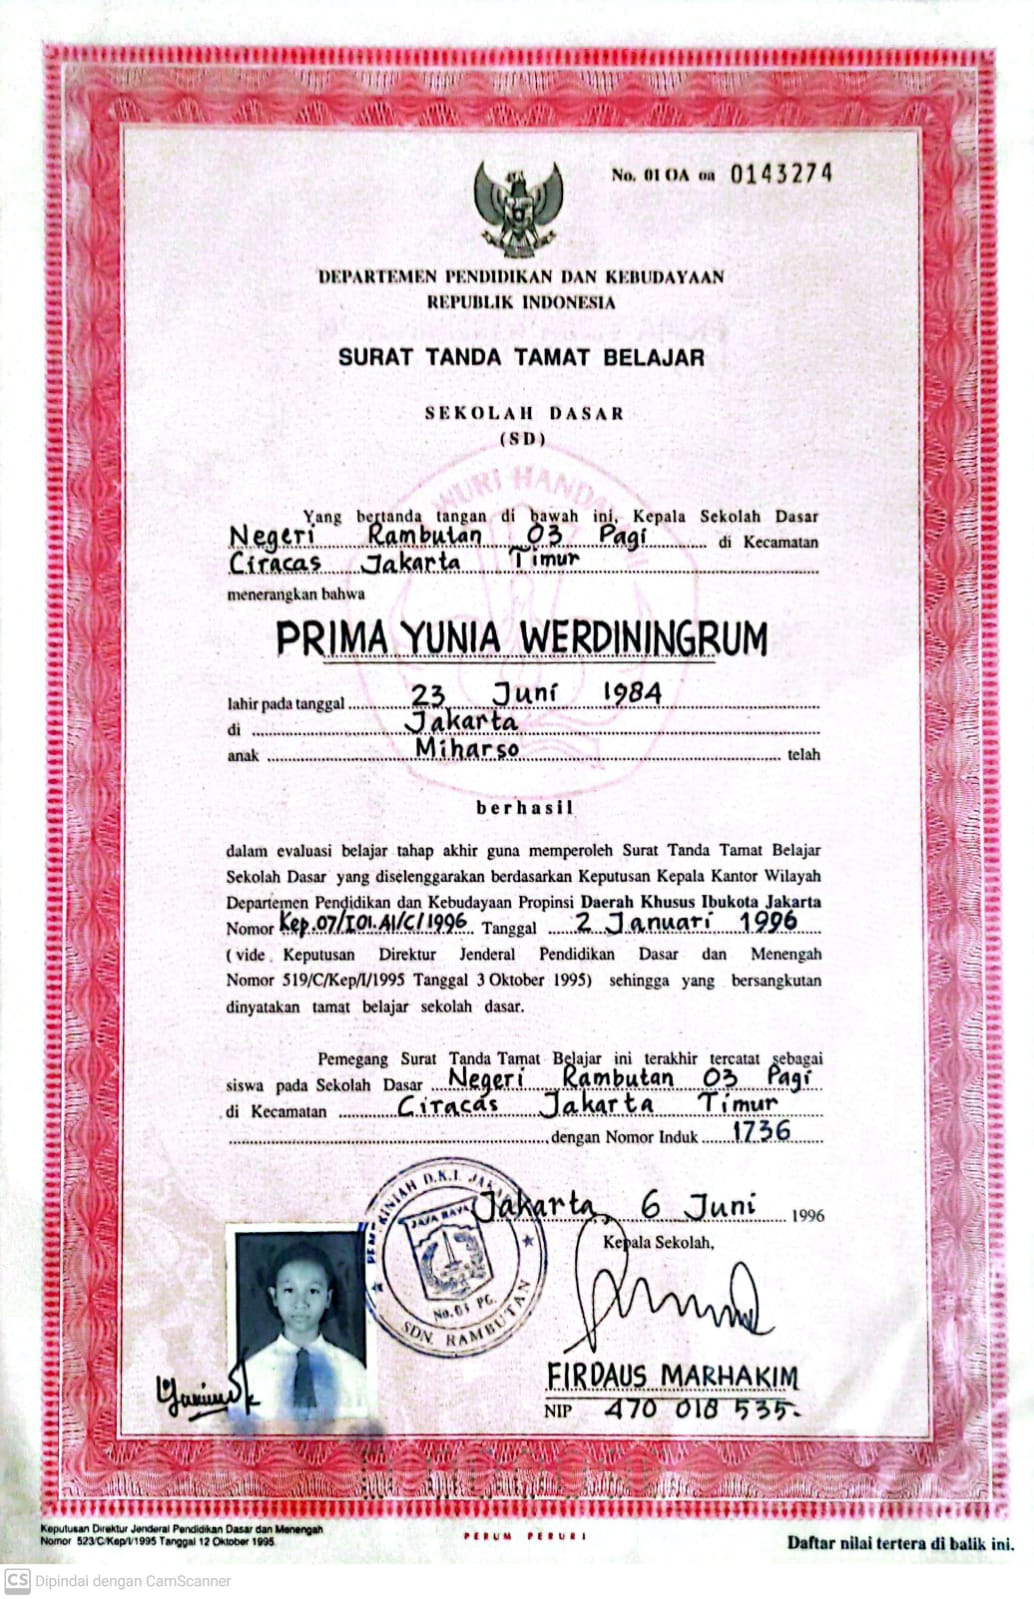 No. 01 OA oa 0143274
DEPARTEMEN PENDIDIKAN DAN KEBUDAYAAN
REPUBLIK INDONESIA
SURAT TANDA TAMAT BELAJAR
SEKOLAH DASAR
(SD)
WURI HANDA
Yang bertanda tangan di bawah ini, Kepala Sekolah Dasar
Negeri Rambutan 03 Pagi di Kecamatan
Ciracas Jakarta Timur
menerangkan bahwa
PRIMA YUNIA WERDININGRUM
lahir pada tanggal 23 Juni 1984
di Jakarta
anak Miharso telah
berhasil
dalam evaluasi belajar tahap akhir guna memperoleh Surat Tanda Tamat Belajar
Sekolah Dasar yang diselenggarakan berdasarkan Keputusan Kepala Kantor Wilayah
Departemen Pendidikan dan Kebudayaan Propinsi Daerah Khusus Ibukota Jakarta
Nomor Kep.07/I01.A1/C/1996 Tanggal 2 Januari 1996
(vide Keputusan Direktur Jenderal Pendidikan Dasar dan Menengah
Nomor 519/C/Kep/I/1995 Tanggal 3 Oktober 1995) sehingga yang bersangkutan
dinyatakan tamat belajar sekolah dasar.
Pemegang Surat Tanda Tamat Belajar ini terakhir tercatat sebagai
siswa pada Sekolah Dasar Negeri Rambutan 03 Pagi
di Kecamatan Ciracas Jakarta Timur
, dengan Nomor Induk 1736
Jakarta, 6 Juni 1996
Kepala Sekolah,
D.K.I. JAK
JAYA RAYA
No. 03 PG.
SDN. RAMBUTAN
FIRDAUS MARHAKIM
NIP 470 018 535.
Keputusan Direktur Jenderal Pendidikan Dasar dan Menengah
Nomor 523/C/Kep/I/1995 Tanggal 12 Oktober 1995
PERUM PERURI
Daftar nilai tertera di balik ini.
CS Dipindai dengan CamScanner